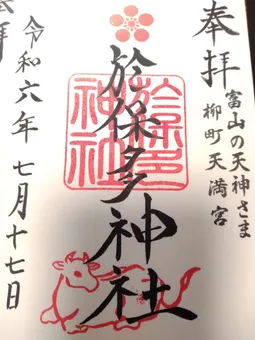 奉拝
富山の天神さま
柳町天満宮
於保多神社
於保多神社
令和六年七月十七日